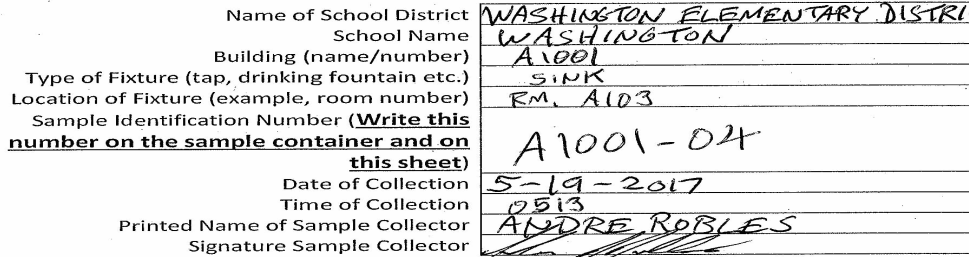 Name of School District WASHINGTON ELEMENTARY DISTRI
School Name WASHINGTON
Building (name/number) A1001
Type of Fixture (tap, drinking fountain etc.) SINK
Location of Fixture (example, room number) RM. A103
Sample Identification Number (Write this
number on the sample container and on A1001-04
this sheet)
Date of Collection 5-19-2017
Time of Collection 0513
Printed Name of Sample Collector ANDRE ROBLES
Signature Sample Collector